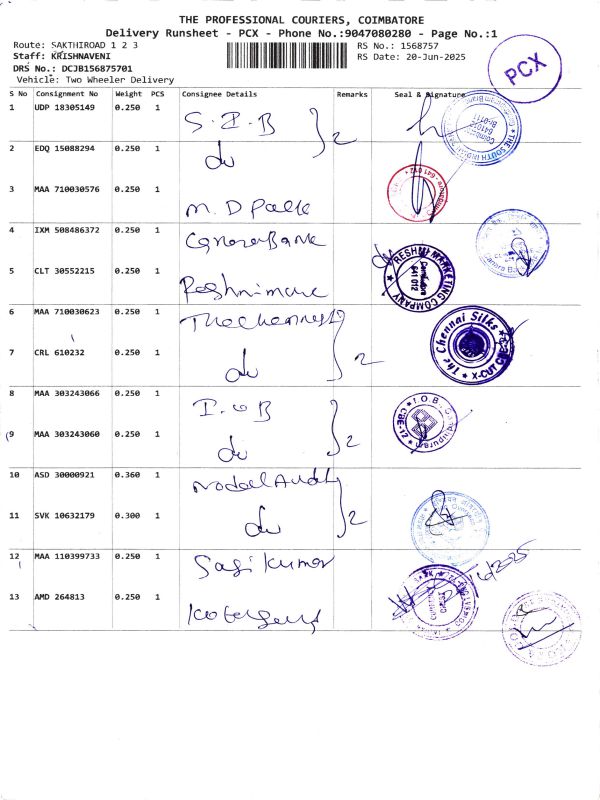 THE PROFESSIONAL COURIERS, COIMBATORE
Delivery Runsheet - PCX - Phone No.:9047080280 - Page No.:1
Route: SAKTHIROAD 1 2 3
RS No.: 1568757
Staff: KRISHNAVENI
RS Date: 20-Jun-2025
DRS No.: DCJB156875701
Vehicle: Two Wheeler Delivery
PCX
S No Consignment No Weight PCS Consignee Details Remarks Seal & Signature
1 UDP 18305149 0.250 1 S.I.B 2
THE SOUTH INDIAN
2 EDQ 15088294 0.250 1 do
3 MAA 710030576 0.250 1 M.D
4 IXM 508486372 0.250 1 Canara Bank
5 CLT 30552215 0.250 1
RESHMI MARKETING COMPANY
Coimbatore
641 012
6 MAA 710030623 0.250 1
7 CRL 610232 0.250 1 do 2
The Chennai Silks
X-CUT
8 MAA 303243066 0.250 1 I.O.B
9 MAA 303243060 0.250 1 do 2
I.O.B.
CBE-12
10 ASD 30000921 0.360 1
11 SVK 10632179 0.300 1 do 2
12 MAA 110399733 0.250 1 Sasi Kumar
13 AMD 264813 0.250 1